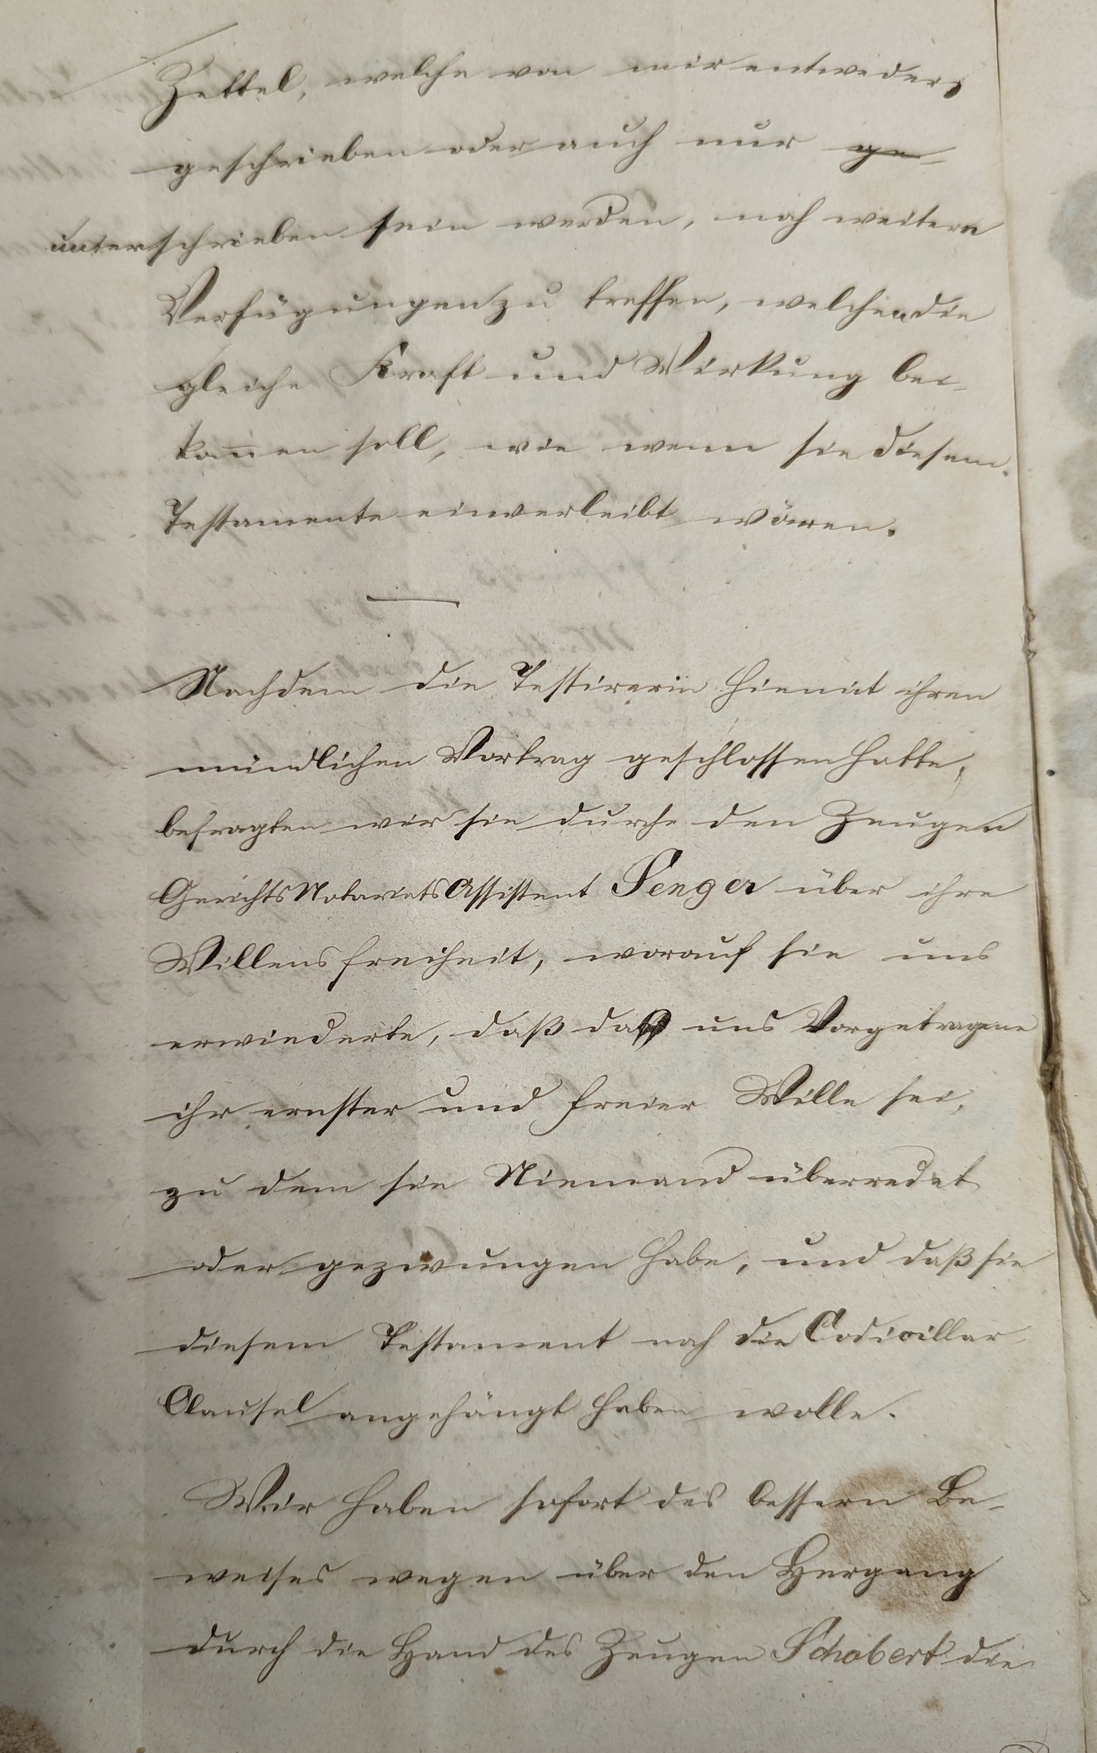 Zettel, welche von mir entweder
geschrieben oder auch nur ge-
unterschrieben sein werden, noch weitere
Verfügungen zu treffen, welchen die
gleiche Kraft und Wirkung bei-
kom̅en soll, wie wenn sie diesem
Testamente einverleibt wären.
Nachdem die Testirerin hiemit ihren
mündlichen Vortrag geschlossen hatte,
befragten wir sie durch den Zeugen
GerichtsNotariatsAssistent Senger über ihre
Willensfreiheit, worauf sie uns
erwiederte, daß das uns Vorgetragene
ihr ernster und freier Wille sei,
zu dem sie Niemand überredet
oder gezwungen habe, und daß sie
diesem Testament noch die Codicillar
Clausel angehängt haben wolle.
Wir haben sofort des bessern Be-
weises wegen über den Hergang
durch die Hand des Zeugen Schobert die